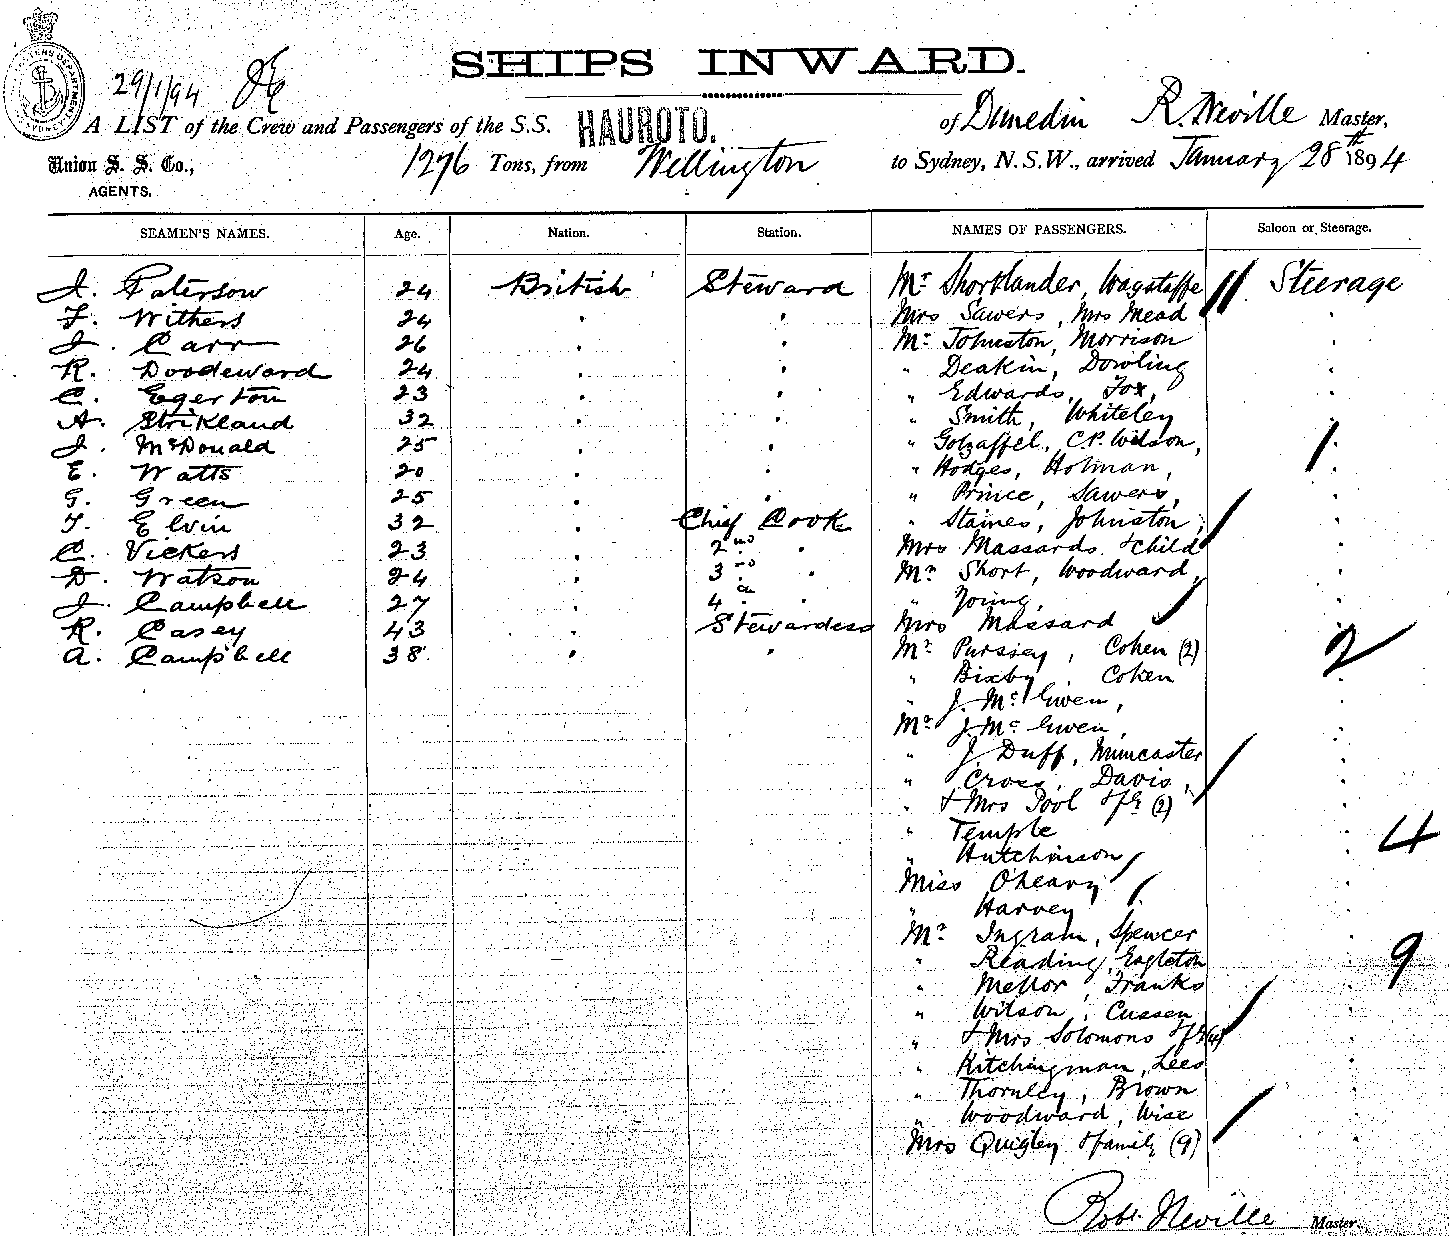 SHIPS INWARD.
29/1/94
A LIST of the Crew and Passengers of the S.S. HAUROTO. of Dunedin R. Neville Master,
Union S. S. Co., 1276 Tons, from Wellington to Sydney, N.S.W., arrived January 28th 1894
AGENTS.
SEAMEN'S NAMES. Age. Nation. Station. NAMES OF PASSENGERS. Saloon or Steerage.
J. Paterson 24 British Steward Mr Shortlander, Wagstaffe Steerage
F. Withers 24 " " Mrs Sawers, Mrs Mead "
J. Carr 26 " " Mr Johnston, Morrison "
R. Doodeward 24 " " " Deakin, Dowling "
C. Egerton 23 " " " Edwards, Fox, "
A. Strikland 32 " " " Smith, Whiteley "
J. McDonald 25 " " " C.P. Wilson, "
E. Watts 20 " " " Hodges, Holman, "
G. Green 25 " " " Prince, Sawers, "
T. Elvin 32 " Chief Cook " Staines, Johnston, "
C. Vickers 23 " 2nd " Mrs Massards & child "
D. Watson 24 " 3rd " Mr Short, Woodward, "
J. Campbell 27 " 4th " " Young, "
R. Casey 43 " Stewardess Mrs Massard "
A. Campbell 38 " " Mr Pursley, Cohen (2) 2
" Bixby, Cohen "
" J. McEwen, "
Mr J. McEwen, "
" J. Duff, Muncaster "
" Cross, Davis, "
" & Mrs Pool & fy (2) "
" Temple " 4
" Hutchinson "
Miss O'Leary "
" Harvey "
Mr Ingram, Spencer "
" Reading, Eagleton " 9
" Mellor, Franks "
" Wilson, Cussen "
" & Mrs Solomons & fy (4) "
" Kitchingman, Lees "
" Thornley, Brown "
" Woodward, Wise "
Mrs Quigley & family (9) "
Robt. Neville Master.